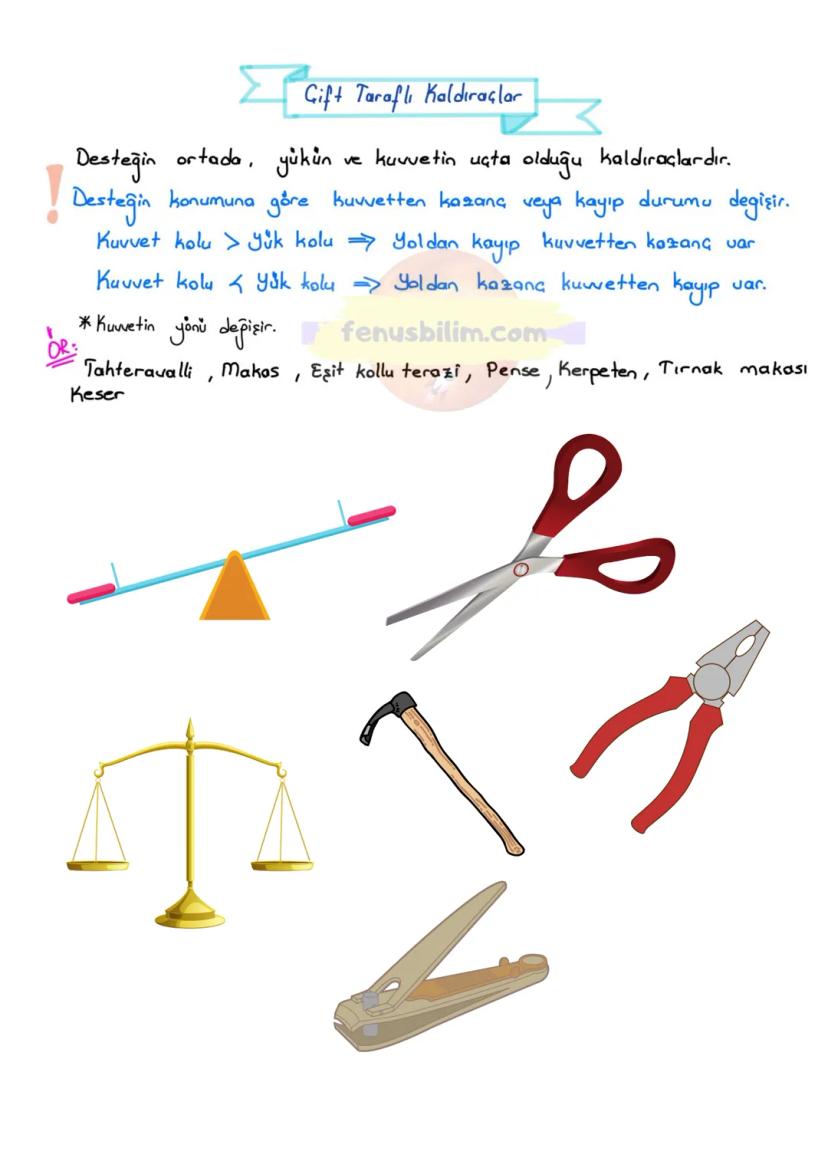 Çift Taraflı Kaldıraçlar
Desteğin ortada, yükün ve kuvvetin uçta olduğu kaldıraçlardır.
! Desteğin konumuna göre kuvvetten kazanç veya kayıp durumu değişir.
Kuvvet kolu > Yük kolu ⇒ Yoldan kayıp kuvvetten kazanç var
Kuvvet kolu < Yük kolu ⇒ Yoldan kazanç kuvvetten kayıp var.
* Kuvvetin yönü değişir.
fenusbilim.com
ÖR:
Tahteravalli, Makas, Eşit kollu terazi, Pense, Kerpeten, Tırnak makası
Keser